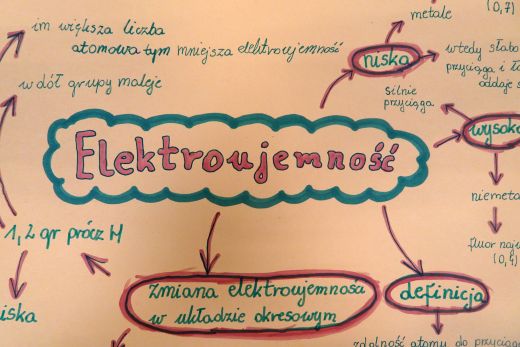 im większa liczba
atomowa tym mniejsza elektroujemność
w dół grupy maleje
metale
(0,7)
niska
wtedy słabo
przyciąga i
oddaje
silnie
przyciąga
wysoka
Elektroujemność
niemeta
fluor naj
1, 2 gr prócz H
iska
zmiana elektroujemności
w układzie okresowym
definicja
zdolność atomu do przyciąg